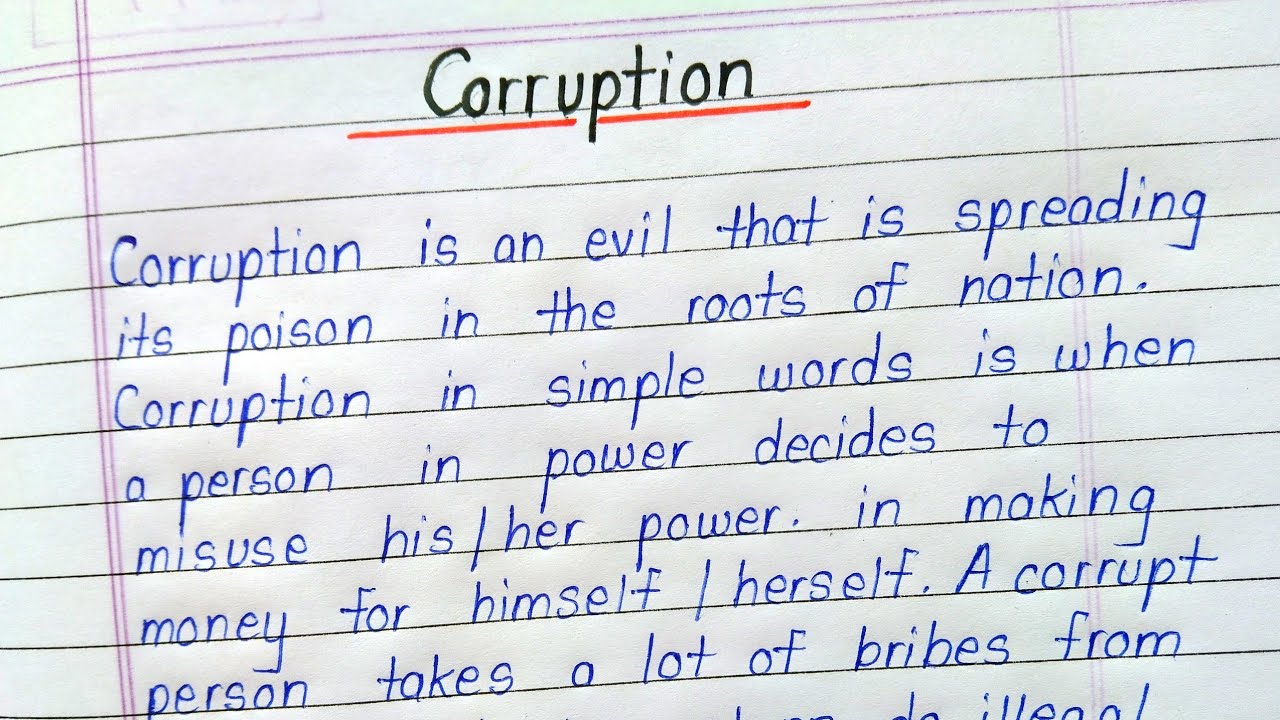 Corruption
Corruption is an evil that is spreading
its poison in the roots of nation.
Corruption in simple words is when
a person in power decides to
misuse his/her power. in making
money for himself/herself. A corrupt
person takes a lot of bribes from
do illegal